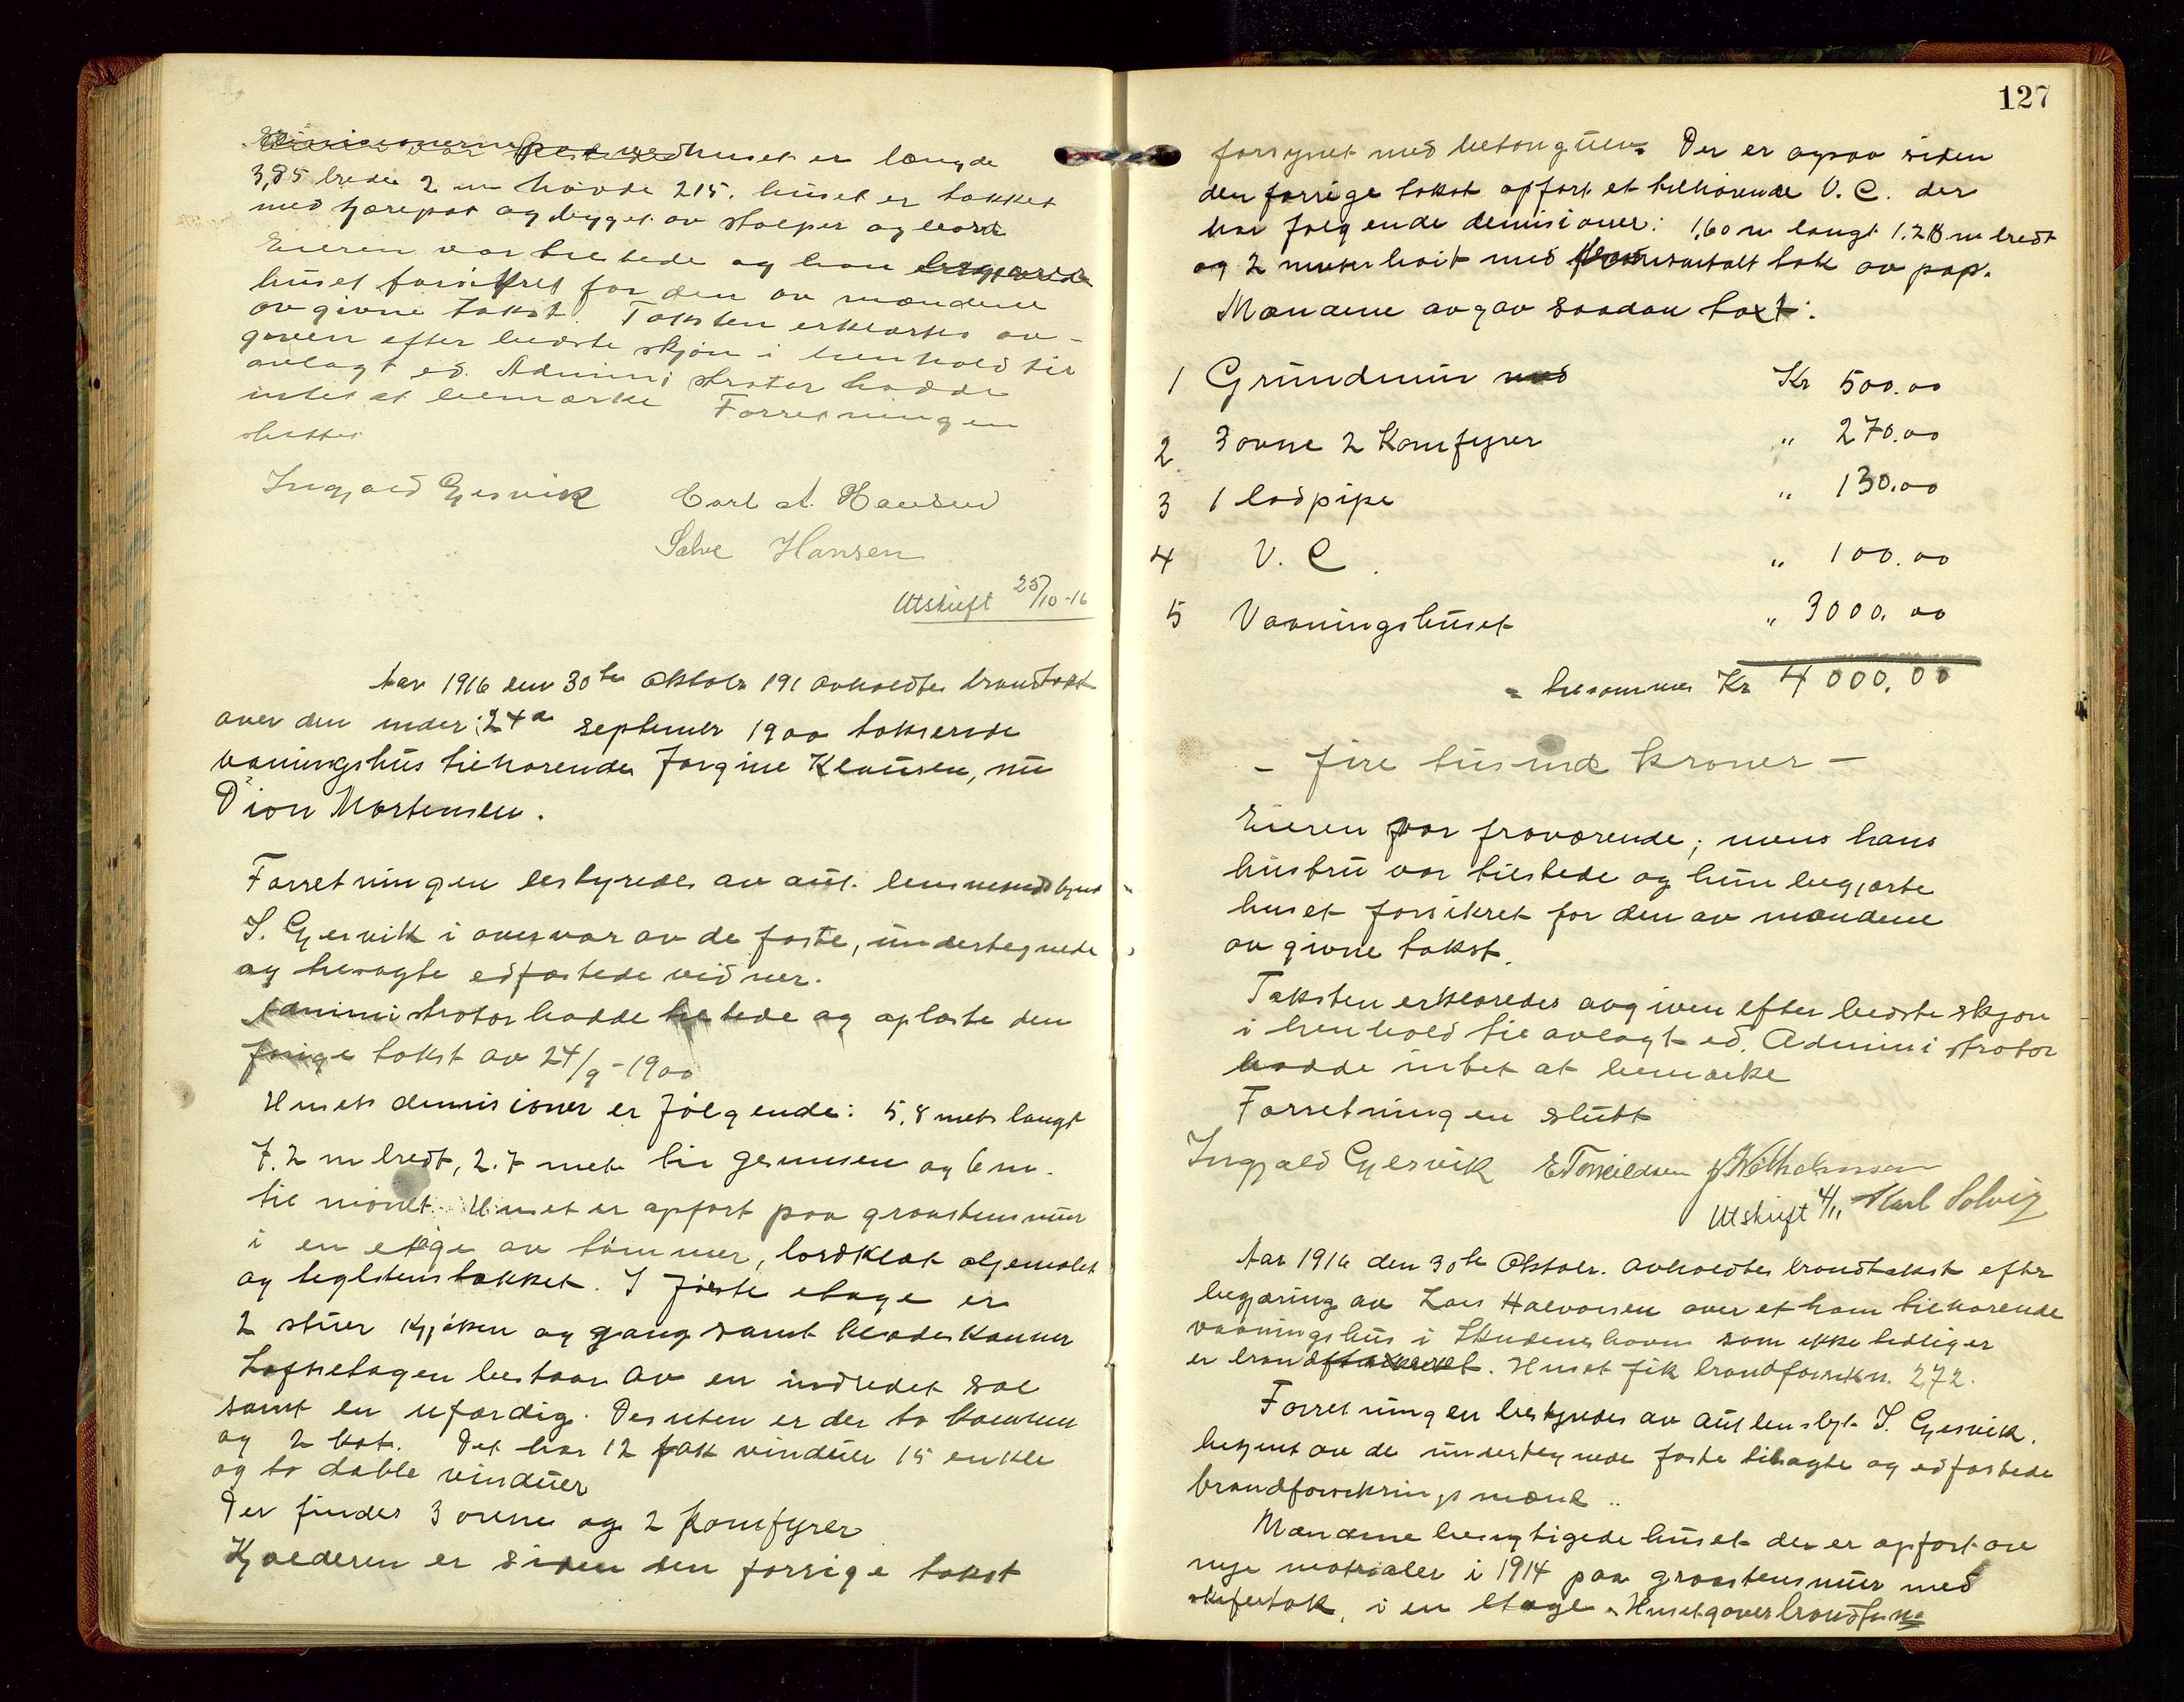 vedhuset er længde
3,85 brede 2 m høide 215. huset er takket
med tjærepap og bygget av stolper og bord
Eieren var tilstede og han begjærede
huset forsikret for den av mændene
avgivne takst. Taksten erklærtes av-
given efter bedste skjøn i henhold til
avlagt ed. Administrator hadde
intet at bemærke Forretningen
sluttet
Ingjald Gjesvik Carl A. Hansen
Salve Hansen
Utskrift 25/10-16
Aar 1916 den 30te Oktobr 191 avholdtes brandtakst
over den under 24de september 1900 takserede
vaaningshus tilhørende Jørgine Klausen, nu
Dion Mortensen.
Forretningen bestyredes av aut. lensmands
I. Gjesvik i overvær av de faste, undertegnede
og tilsagte edfæstede vidner.
Administrator hadde tilstede og oplæste den
forrige takst av 24/9-1900
Husets demisioner er følgende: 5,8 mets langt
7.2 m bredt, 2.7 mets til gesimsen og 6 m.
til mønet. Huset er opført paa graastensmur
i en etage av tømmer, bordklædt oljemalet
og teglstenstakket. I første etage er
2 stuer kjøken og gang samt klædeskammer
Loftsetagen bestaar av en indredet sal
samt en ufærdig. Desuten er der to kammer
og 2 kot. Det har 12 fak vinduer 15 enkle
og to doble vinduer
Der findes 3 ovne og 2 komfyrer
Kjælderen er siden den forrige takst
127
forsynet med betongulv. Der er ogsaa siden
den forrige takst opført et tilhørende V. C. der
har følgende demisioner: 1,60 m langt 1.28 m bredt
og 2 meter høit med tak av pap.
Mændene avgav saadan taxt:
1 Grundmur med Kr 500.00
2 3 ovne 2 Komfyrer " 270.00
3 1 lodpipe " 130.00
4 V. C. " 100.00
5 Vaaningshuset " 3000.00
= tilsammen Kr 4000.00
- fire tusind kroner -
Eieren var fraværende; mens hans
hustru var tilstede og hun begjærte
huset forsikret for den av mændene
avgivne takst.
Taksten erklæredes avgiven efter bedste skjøn
i henhold til avlagt ed. Administrator
hadde intet at bemærke
Forretningen slutt
Ingjald Gjesvik E Torkildsen J Wilhelmsen
Utskrift 4/11 Karl Solvig
Aar 1916 den 30te Oktobr. avholdtes brandtakst efter
begjæring av Lars Halvorsen over et ham tilhørende
vaaningshus i Skudeneshavn som ikke tidliger
er brandtakseret. Huset fik brandforsikn. 272.
Forretningen bestyredes av aut lensbt. I. Gjesvik.
betjent av de undertegnede faste tilsagte og edfæstede
brandforsikrings mænd..
Mændene besigtigede huset der er opført av
nye materialer i 1914 paa graastensmur med
skifertak, i en etage.